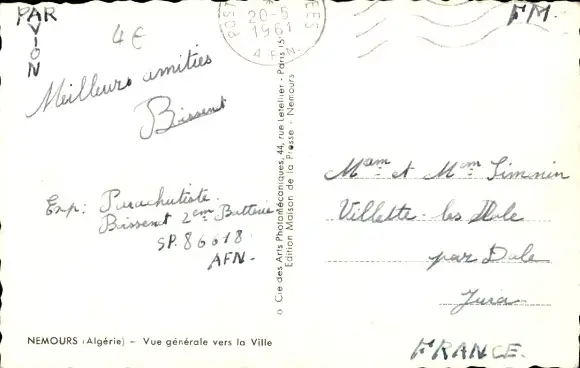 PAR
AVION
4€
20-5
1961
FM.
Meilleurs amitiés
Bissent
Exp: Parachutiste
Bissent 2em Batterie
SP. 86618
AFN-
© Cie des Arts Photomécaniques, 44, rue Letellier - Paris 15e
Edition Maison de la Presse - Nemours
Mam et Mem Simnin
Villette-les Dole
par Dole
Jura
FRANCE.
NEMOURS (Algérie) - Vue générale vers la Ville